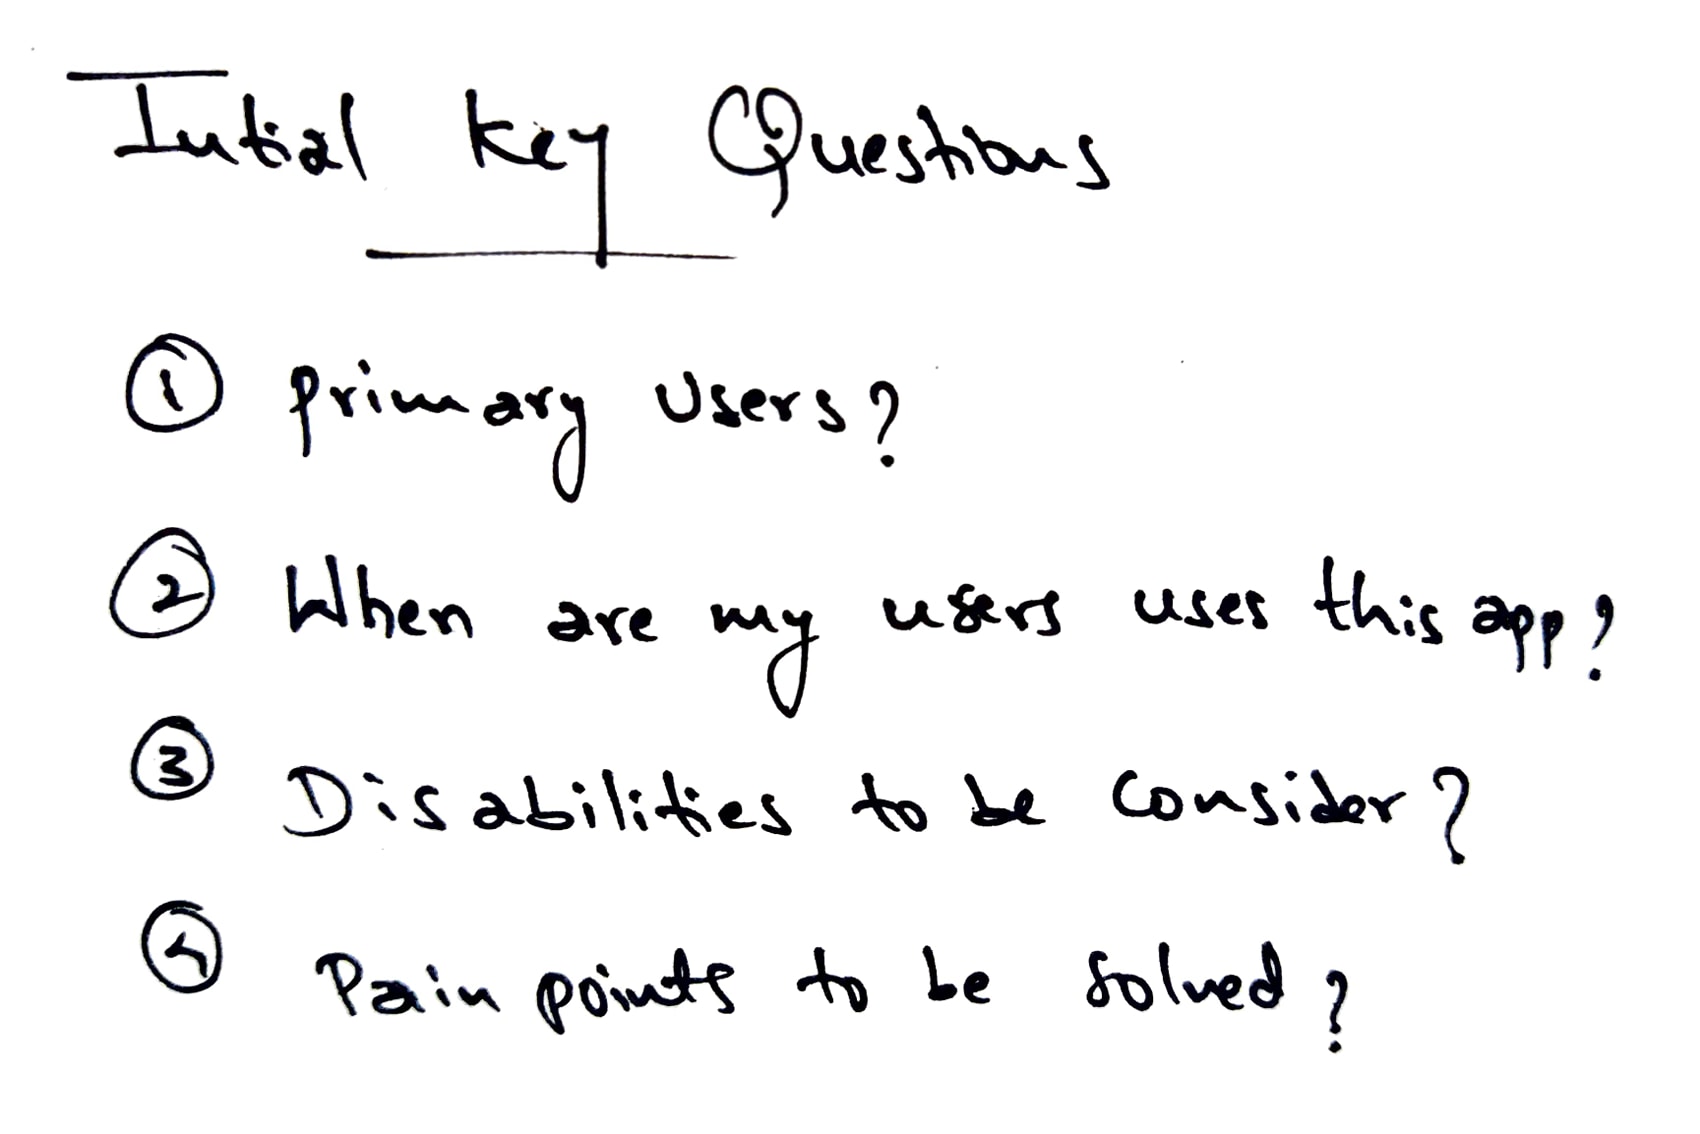 Intial Key Questions
1 Primary Users?
2 When are my users uses this app?
3 Disabilities to be consider?
4 Pain points to be solved?